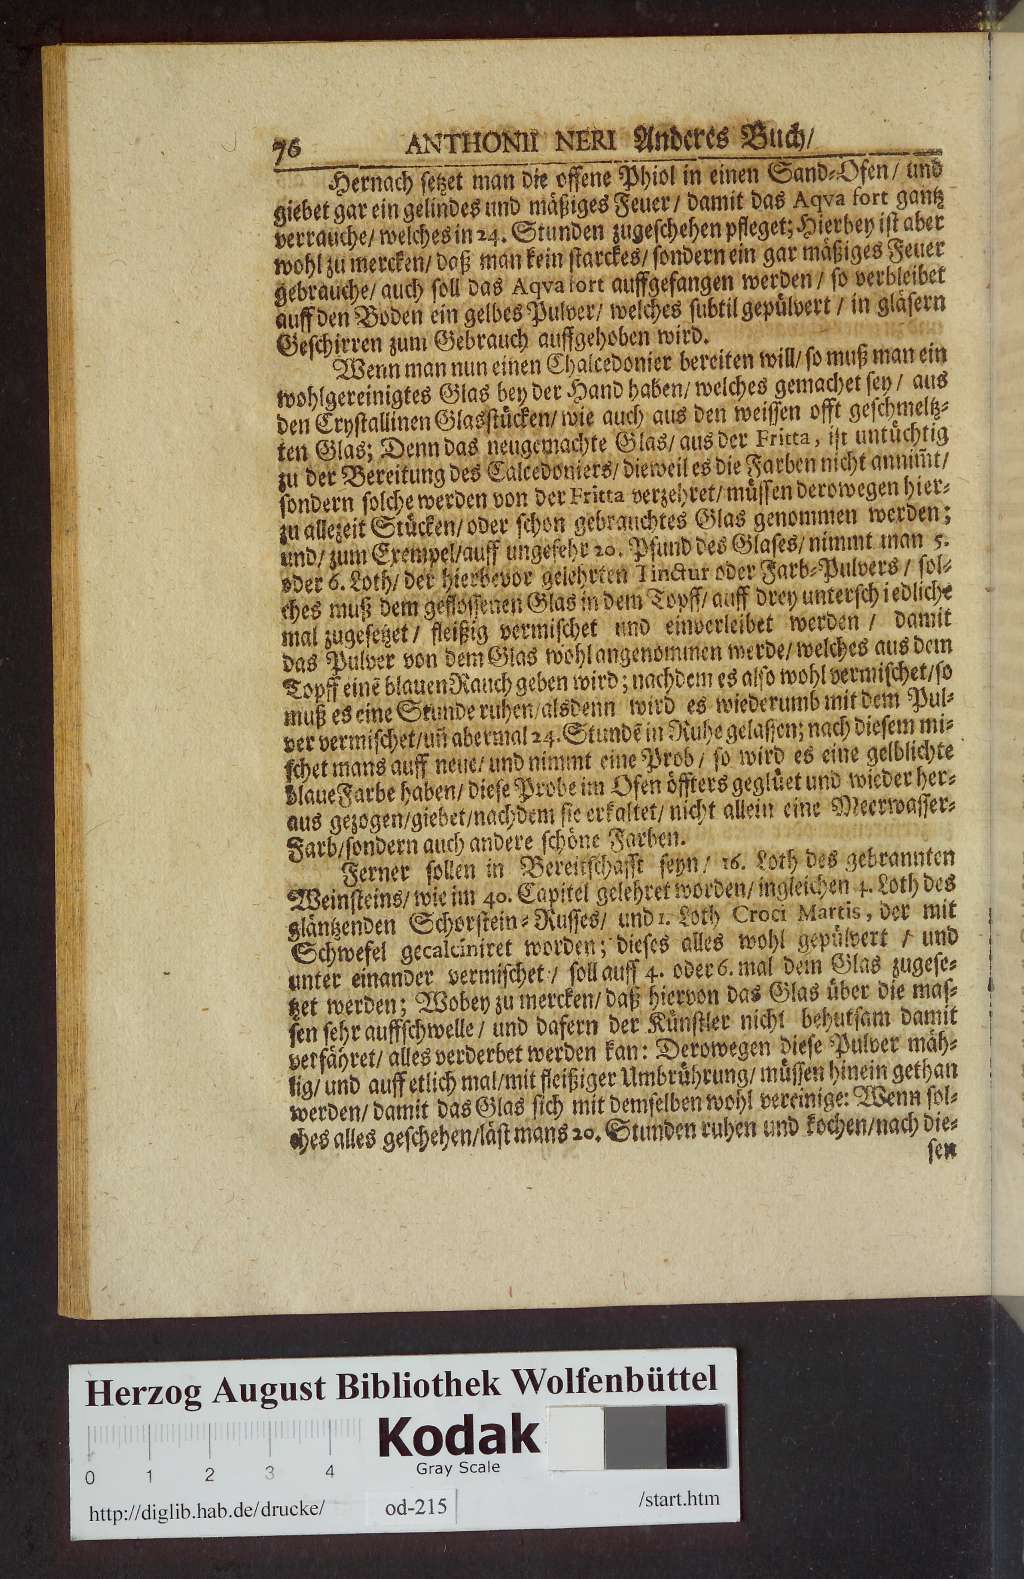 76 ANTHONII NERI Anderes Buch/
Hernach setzet man die offene Phiol in einen Sand-Ofen/ und
giebet gar ein gelindes und mäßiges Feuer/ damit das Aqva fort gantz
verrauche/ welches in 24. Stunden zugeschehen pfleget; Hierbey ist aber
wohl zu mercken/ daß man kein starckes/ sondern ein gar mäßiges Feuer
gebrauche/ auch soll das Aqva fort auffgefangen werden/ so verbleibet
auff den Boden ein gelbes Pulver/ welches subtil gepülvert/ in gläsern
Geschirren zum Gebrauch auffgehoben wird.
Wenn man nun einen Chalcedonier bereiten will/ so muß man ein
wohlgereinigtes Glas bey der Hand haben/ welches gemachet sey/ aus
den Crystallinen Glasstücken/ wie auch aus den weissen offt geschmeltz-
ten Glas; Denn das neugemachte Glas/ aus der Fritta, ist untüchtig
zu der Bereitung des Calcedoniers/ dieweil es die Farben nicht annim̃t/
sondern solche werden von der Fritta verzehret/ müssen derowegen hier-
zu allezeit Stücken/ oder schon gebrauchtes Glas genommen werden;
und/ zum Exempel/ auff ungefehr 20. Pfund des Glases/ nimmt man 5.
oder 6. Loth/ der hierbevor gelehrten Tinctur oder Farb-Pulvers/ sol-
ches muß dem geflossenen Glas in dem Topff/ auff drey unterschiedliche
mal zugesetzet/ fleißig vermischet und einverleibet werden/ damit
das Pulver von dem Glas wohl angenommen werde/ welches aus dem
Topff einē blauen Rauch geben wird; nachdem es also wohl vermischet/ so
muß es eine Stunde ruhen/ alsdenn wird es wiederumb mit dem Pul-
ver vermischet/ uñ abermal 24. Stundē in Ruhe gelassen; nach diesem mi-
schet mans auff neue/ und nimmt eine Prob/ so wird es eine gelblichte
blaue Farbe haben/ diese Probe im Ofen öffters geglüet und wieder her-
aus gezogen/ giebet/ nachdem sie erkaltet/ nicht allein eine Meerwasser-
Farb/ sondern auch andere schöne Farben.
Ferner sollen in Bereitschafft seyn/ 16. Loth des gebrannten
Weinsteins/ wie im 40. Capitel gelehret worden/ ingleichen 4. Loth des
gläntzenden Schorstein-Russes/ und 1. Loth Croci Martis, der mit
Schwefel gecalciniret worden; dieses alles wohl gepülvert/ und
unter einander vermischet/ soll auff 4. oder 6. mal dem Glas zugese-
tzet werden; Wobey zu mercken/ daß hiervon das Glas über die mas-
sen sehr auffschwelle/ und dafern der Künstler nicht behutsam damit
verfähret/ alles verderbet werden kan: Derowegen diese Pulver mäh-
lig/ und auff etlich mal/ mit fleißiger Umbrührung/ müssen hinein gethan
werden/ damit das Glas sich mit demselben wohl vereinige: Wenn sol-
ches alles geschehen/ läst mans 20. Stunden ruhen und kochen/ nach die-
sen
Herzog August Bibliothek Wolfenbüttel
Kodak
Gray Scale
0 1 2 3 4
http://diglib.hab.de/drucke/ od-215 /start.htm